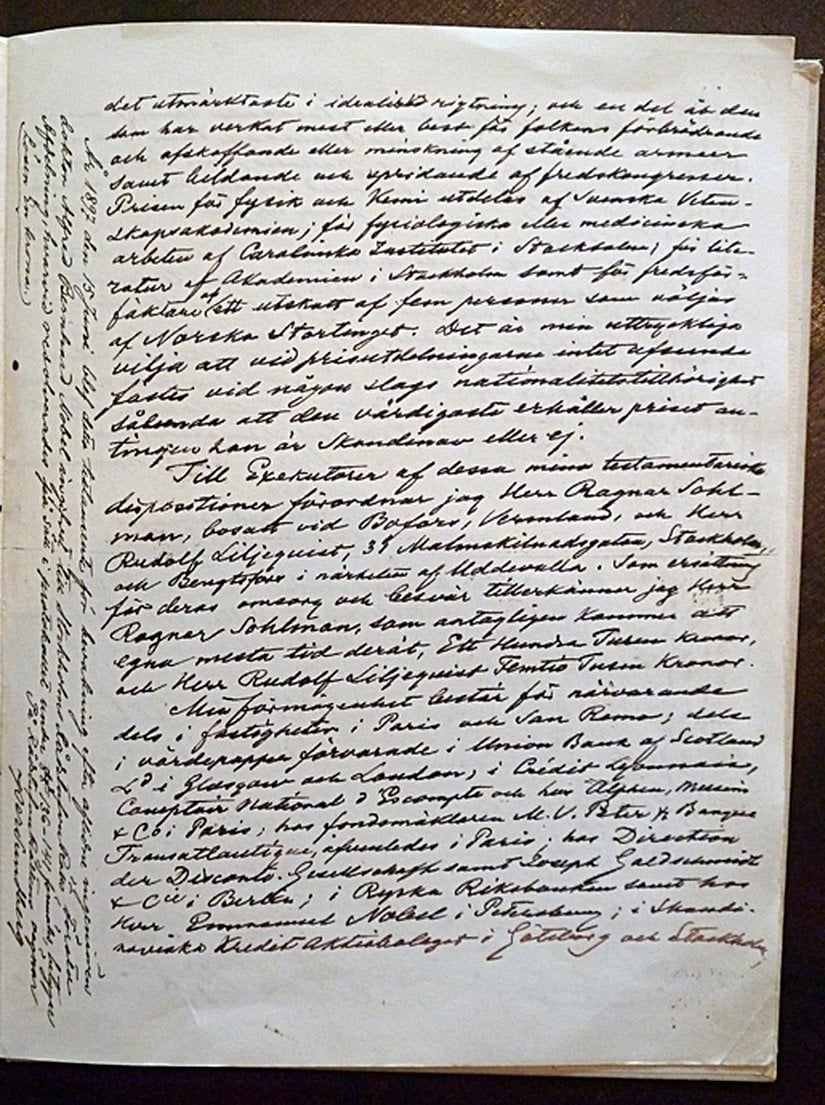 det utmärktaste i idealisk rigtning; och en del åt den
som har verkat mest eller best för folkens förbrödrande
och afskaffande eller minskning af stående armeer
samt bildande och spridande af fredskongresser.
Prisen för fysik och Kemi utdelas af Svenska Veten-
skapsakademien; för fysiologiska eller medicinska
arbeten af Carolinska Institutet i Stockholm; för lite-
ratur af Akademien i Stockholm samt för fredsför-
fäktare af ett utskott af fem personer som väljas
af Norska Stortinget. Det är min uttryckliga
vilja att vid prisutdelningarna intet afseende
fästes vid någon slags nationalitetstillhörighet
sålunda att den värdigaste erhåller priset an-
tingen han är Skandinav eller ej.
Till Exekutorer af dessa mina testamentariska
dispositioner förordnar jag Herr Ragnar Sohl-
man, bosatt vid Bofors, Vermland, och Herr
Rudolf Liljequist, 31 Malmskilnadsgatan, Stockholm,
och Bengtsfors i närheten af Uddevalla. Som ersättning
för deras omsorg och besvär tillerkänner jag Herr
Ragnar Sohlman, som antagligen kommer att
egna mesta tid deråt, Ett Hundra Tusen Kronor,
och Herr Rudolf Liljequist Femtio Tusen Kronor.
Min förmögenhet består för närvarande
dels i fastigheter i Paris och San Remo; dels
i värdepapper förvarade i Union Bank of Scotland
Ld i Glasgow och London, i Crédit Lyonnais,
Comptoir National d'Escompte och hos Alphen, Messin
& Co i Paris; hos fondsmäklaren M. V. Peter & Banque
Transatlantique, afvenledes i Paris; hos Direction
der Disconto Gesellschaft samt Joseph Goldschmidt
& Cie i Berlin; i Ryska Riksbanken samt hos
Herr Emmanuel Nobel i Petersburg; i Skandi-
naviska Kredit Aktiebolaget i Göteborg och Stockholm,
År 1897 den 15 Juni blef detta testamente för bevakning efter aflidne ingeniören
doktor Alfred Bernhard Nobel ingifvet till Stockholms Rådstufvu Rätts
afdelning, hvarvid resolverades på sätt i protokollet under
Lösen En krona